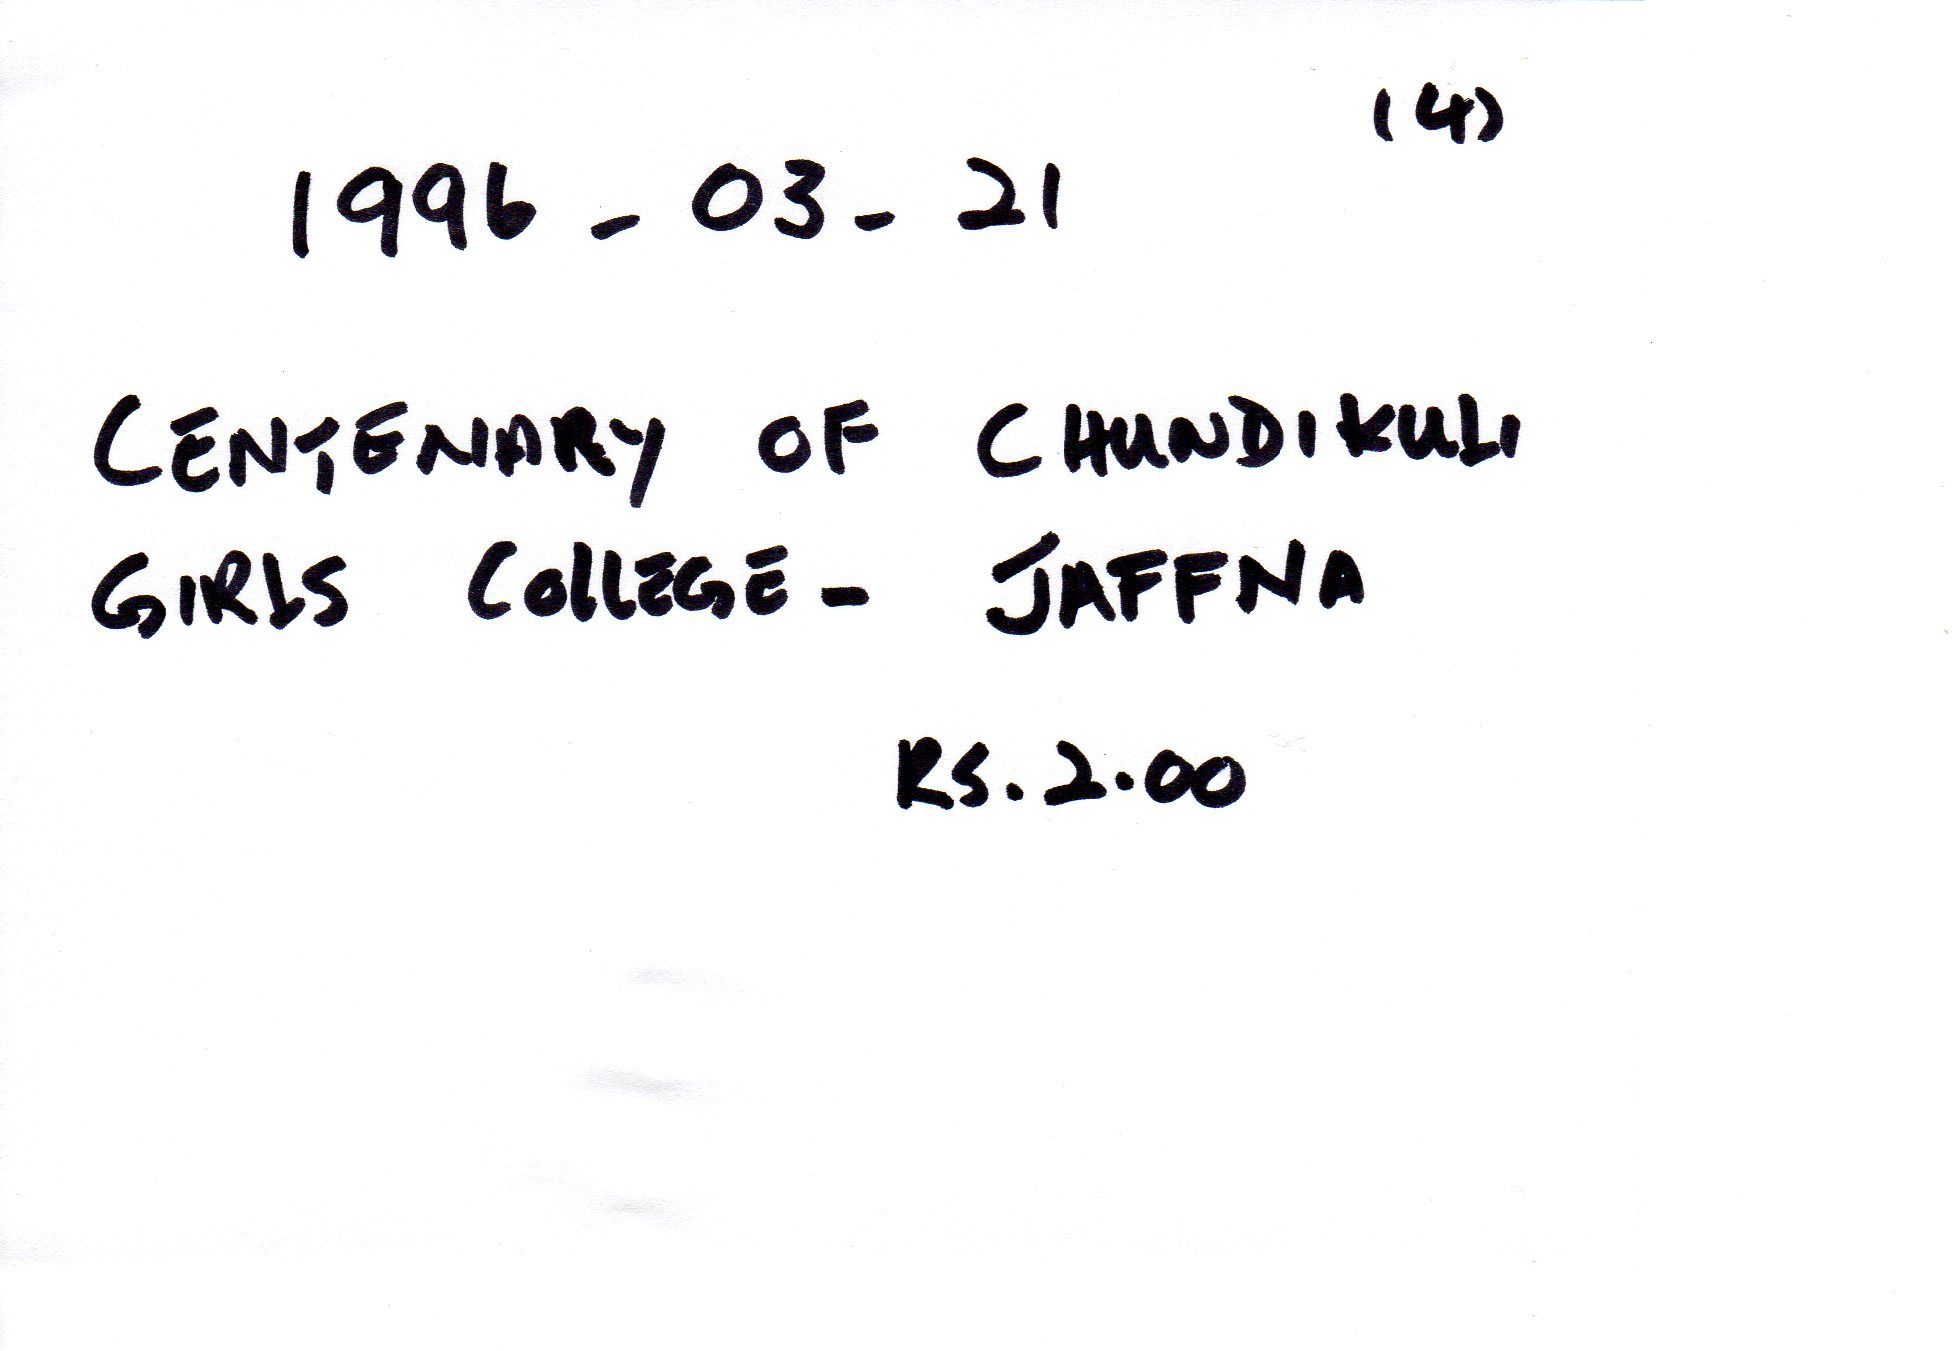 (4)
1996 - 03 - 21
CENTENARY OF CHUNDIKULI
GIRLS COLLEGE - JAFFNA
RS. 2.00